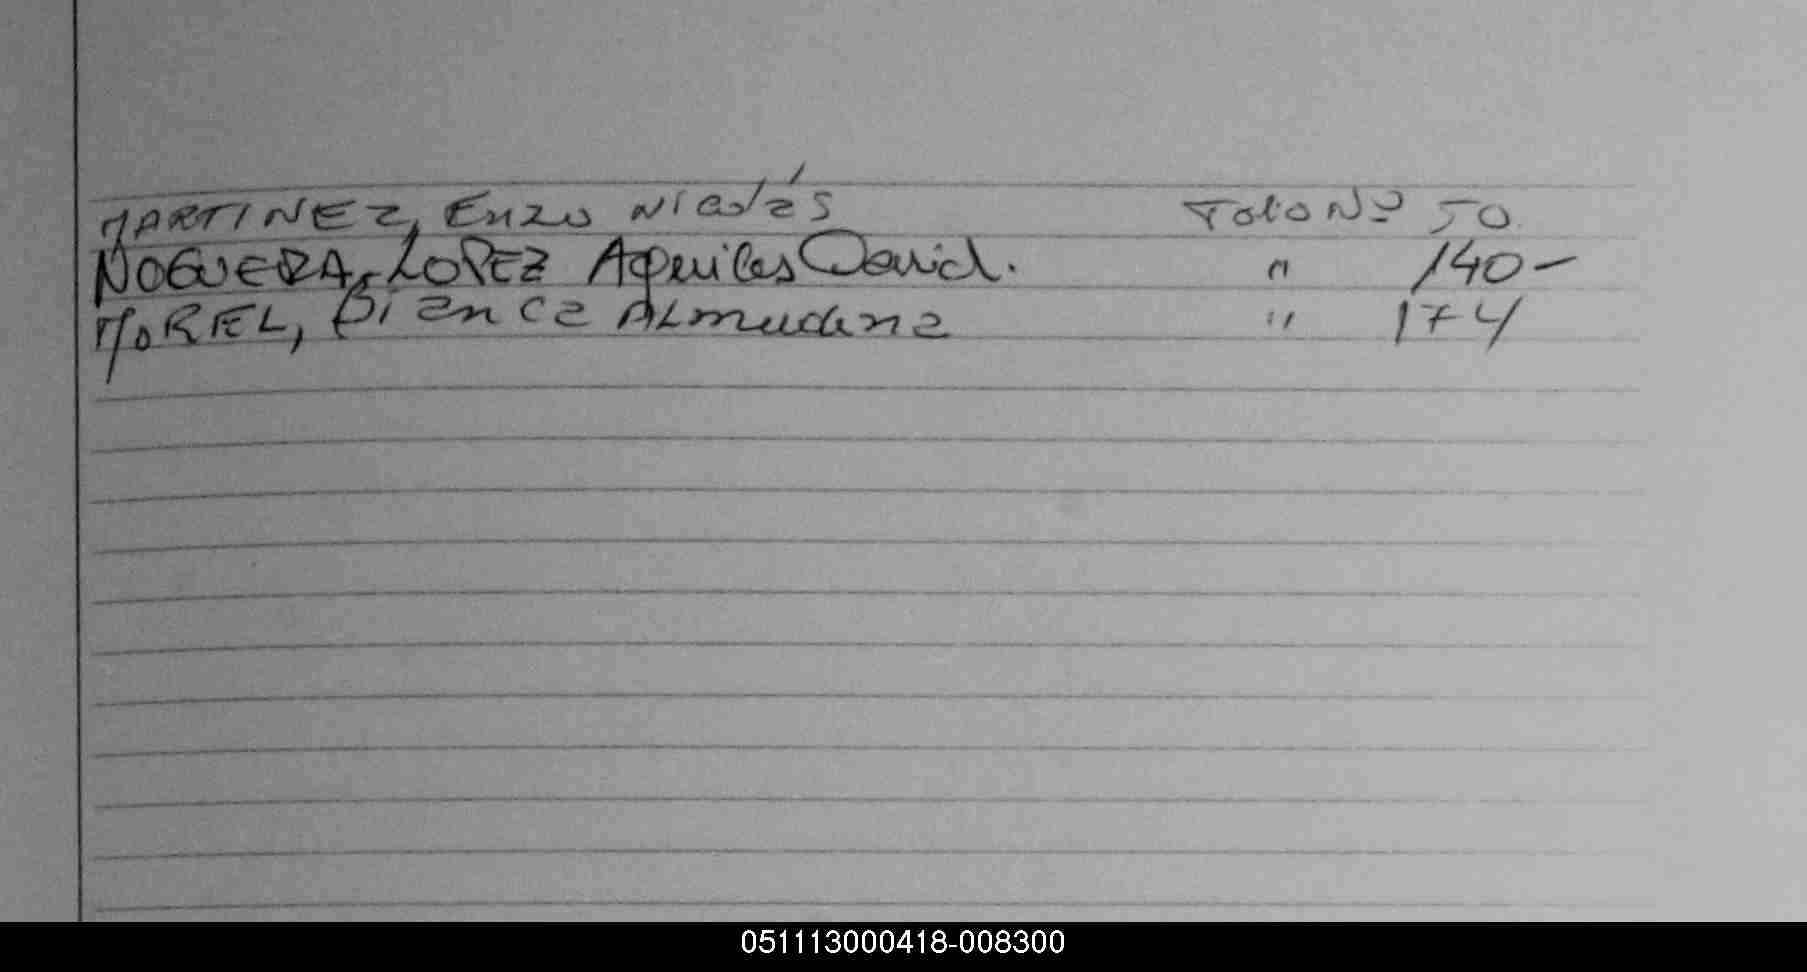 MARTINEZ, Enzo Nicolás Folio Nº 50.
NOGUERA, LOPEZ Aquiles David. " 140-
MOREL, Bianca Almudena " 174
051113000418-008300